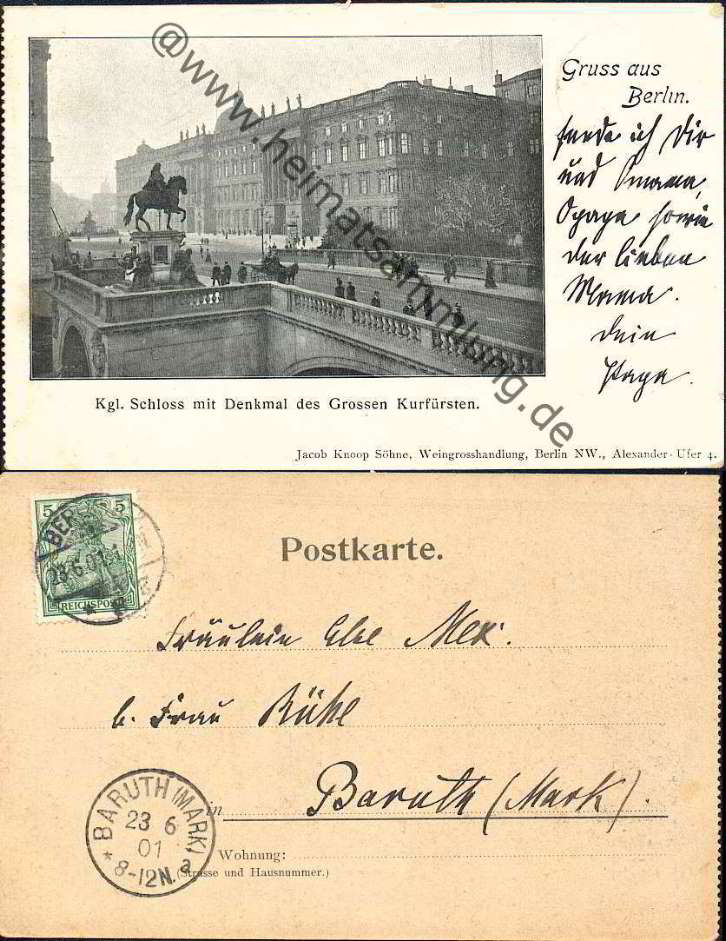 Gruss aus
Berlin.
sende ich Dir
und Omama,
Opapa sowie
der lieben
Mama.
Dein
Papa.
@www.heimatsammlung.de
Kgl. Schloss mit Denkmal des Grossen Kurfürsten.
Jacob Knoop Söhne, Weingrosshandlung, Berlin NW., Alexander-Ufer 4.
5 5
REICHSPOST
BER
23.6.01
Postkarte.
Fräulein Else
b. Frau Rühl
in Baruth (Mark).
BARUTH (MARK)
23 6
01
* 8-12N. a
Wohnung:
(Strasse und Hausnummer.)